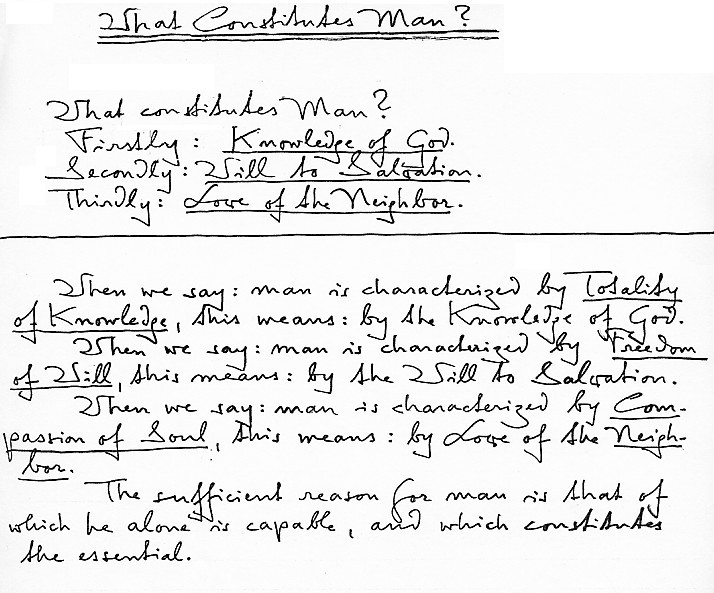 What Constitutes Man?
What constitutes Man?
Firstly: Knowledge of God.
Secondly: Will to Salvation.
Thirdly: Love of the Neighbor.
When we say: man is characterized by Totality
of Knowledge, this means: by the Knowledge of God.
When we say: man is characterized by Freedom
of Will, this means: by the Will to Salvation.
When we say: man is characterized by Com-
passion of Soul, this means: by Love of the Neigh-
bor.
The sufficient reason for man is that of
which he alone is capable, and which constitutes
the essential.